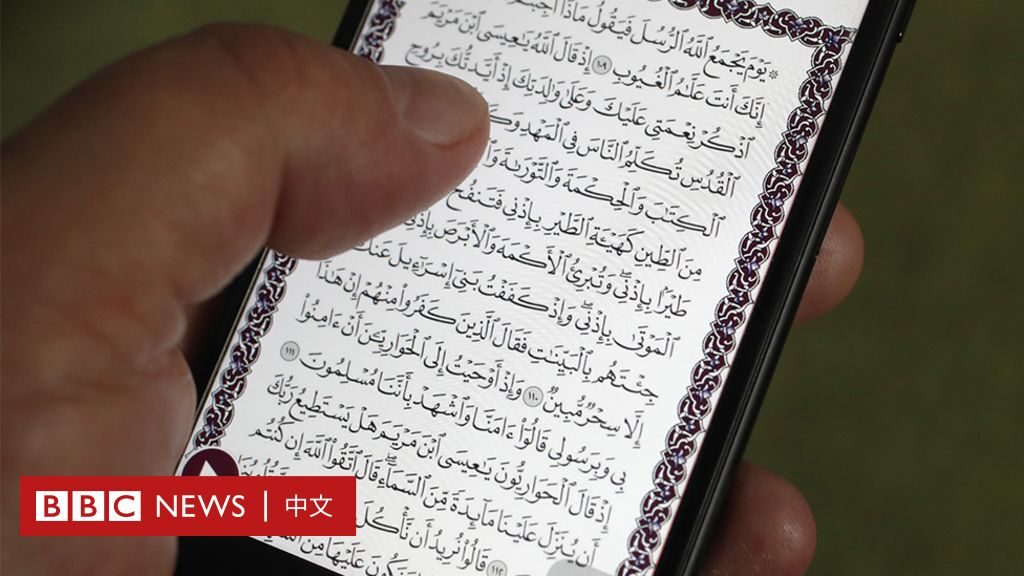 يَوْمَ يَجْمَعُ ٱللَّهُ ٱلرُّسُلَ فَيَقُولُ مَاذَآ أُجِبْتُمْ
إِنَّكَ أَنتَ عَلَّٰمُ ٱلْغُيُوبِ ١٠٩ إِذْ قَالَ ٱللَّهُ يَٰعِيسَى ٱبْنَ مَرْيَمَ
ٱذْكُرْ نِعْمَتِى عَلَيْكَ وَعَلَىٰ وَٰلِدَتِكَ إِذْ أَيَّدتُّكَ بِرُوحِ
ٱلْقُدُسِ تُكَلِّمُ ٱلنَّاسَ فِى ٱلْمَهْدِ
ٱلْكِتَٰبَ وَٱلْحِكْمَةَ وَٱلتَّوْرَىٰةَ
مِنَ ٱلطِّينِ كَهَيْـَٔةِ ٱلطَّيْرِ بِإِذْنِى فَتَنفُخُ
طَيْرًۢا بِإِذْنِى وَتُبْرِئُ ٱلْأَكْمَهَ وَٱلْأَبْرَصَ بِإِذْنِى
ٱلْمَوْتَىٰ بِإِذْنِى وَإِذْ كَفَفْتُ بَنِىٓ إِسْرَٰٓءِيلَ عَنكَ
جِئْتَهُم بِٱلْبَيِّنَٰتِ فَقَالَ ٱلَّذِينَ كَفَرُوا۟ مِنْهُمْ إِنْ هَٰذَآ
إِلَّا سِحْرٌ مُّبِينٌ ١١٠ وَإِذْ أَوْحَيْتُ إِلَى ٱلْحَوَارِيِّـۧنَ أَنْ ءَامِنُوا۟
بِى وَبِرَسُولِى قَالُوٓا۟ ءَامَنَّا وَٱشْهَدْ بِأَنَّنَا مُسْلِمُونَ ١١١
إِذْ قَالَ ٱلْحَوَارِيُّونَ يَٰعِيسَى ٱبْنَ مَرْيَمَ هَلْ يَسْتَطِيعُ رَبُّكَ
أَن يُنَزِّلَ عَلَيْنَا مَآئِدَةً مِّنَ ٱلسَّمَآءِ قَالَ ٱتَّقُوا۟ ٱللَّهَ إِن كُنتُم
١١٢ قَالُوا۟ نُرِيدُ أَن نَّأْكُلَ
BBC NEWS | 中文